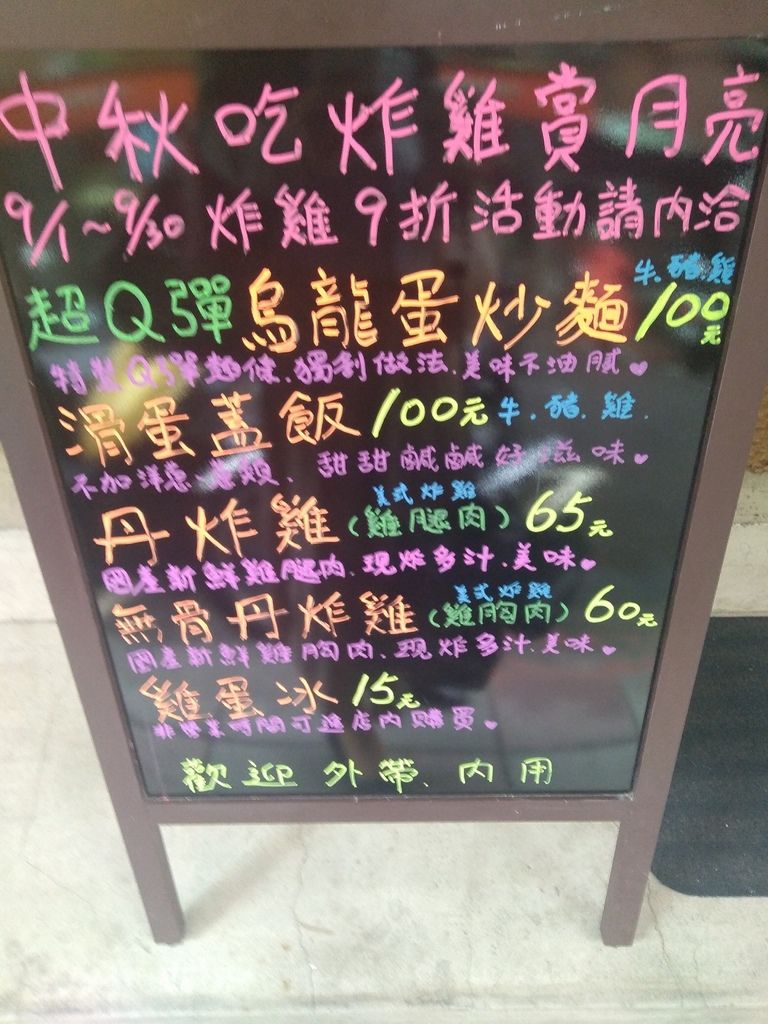 中秋吃炸雞賞月亮
9/1~9/30 炸雞9折活動請內洽
牛.豬.雞
超Q彈烏龍蛋炒麵100元
特製Q彈麵條.獨利做法.美味不油膩♥
滑蛋蓋飯100元 牛.豬.雞.
不加洋蔥、甜甜鹹鹹好滋味♥
美式炸雞
丹炸雞(雞腿肉)65元
國產新鮮雞腿肉.現炸多汁.美味♥
美式炸雞
無骨丹炸雞(雞胸肉)60元
國產新鮮雞胸肉.現炸多汁.美味♥
雞蛋冰15元
非營業時間可進店內購買♥
歡迎外帶、內用